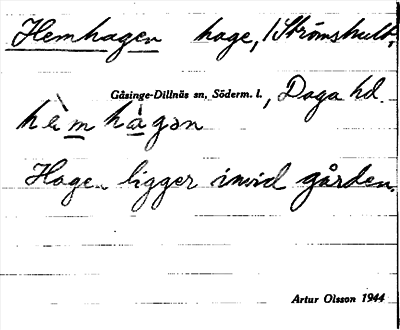 Hemhagen hage, /Strömshult,
Gåsinge-Dillnäs sn, Söderm. l., Daga hd.
hèm hàgən
Hagen ligger invid gården.
Artur Olsson 1944